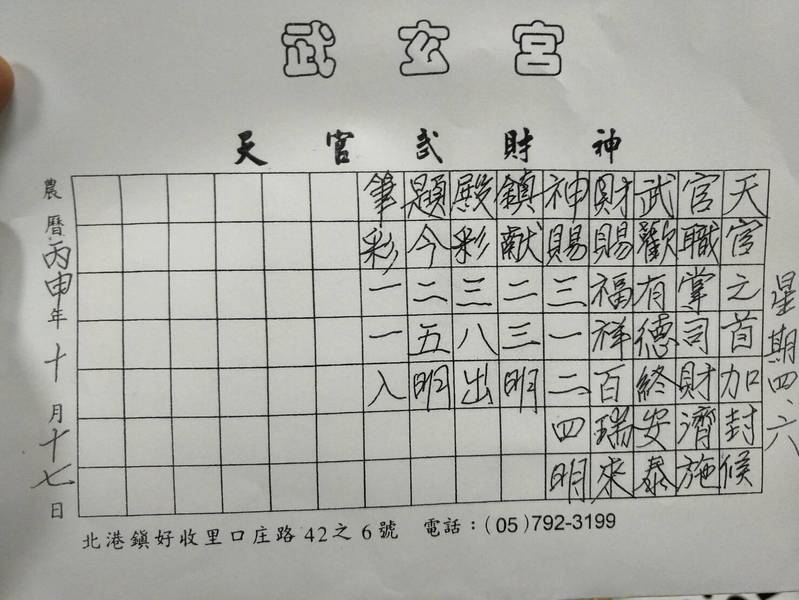 武玄宮
天官武財神
星期四、六
天官之首加封候
官職掌司財濟施
武歡有德終安泰
財賜福祥百瑞來
神賜三一二四明
鎮献二三明
殿彩三八出
題今二五明
筆彩一一入
農曆丙申年十月十七日
北港鎮好收里口庄路42之6號 電話：(05)792-3199